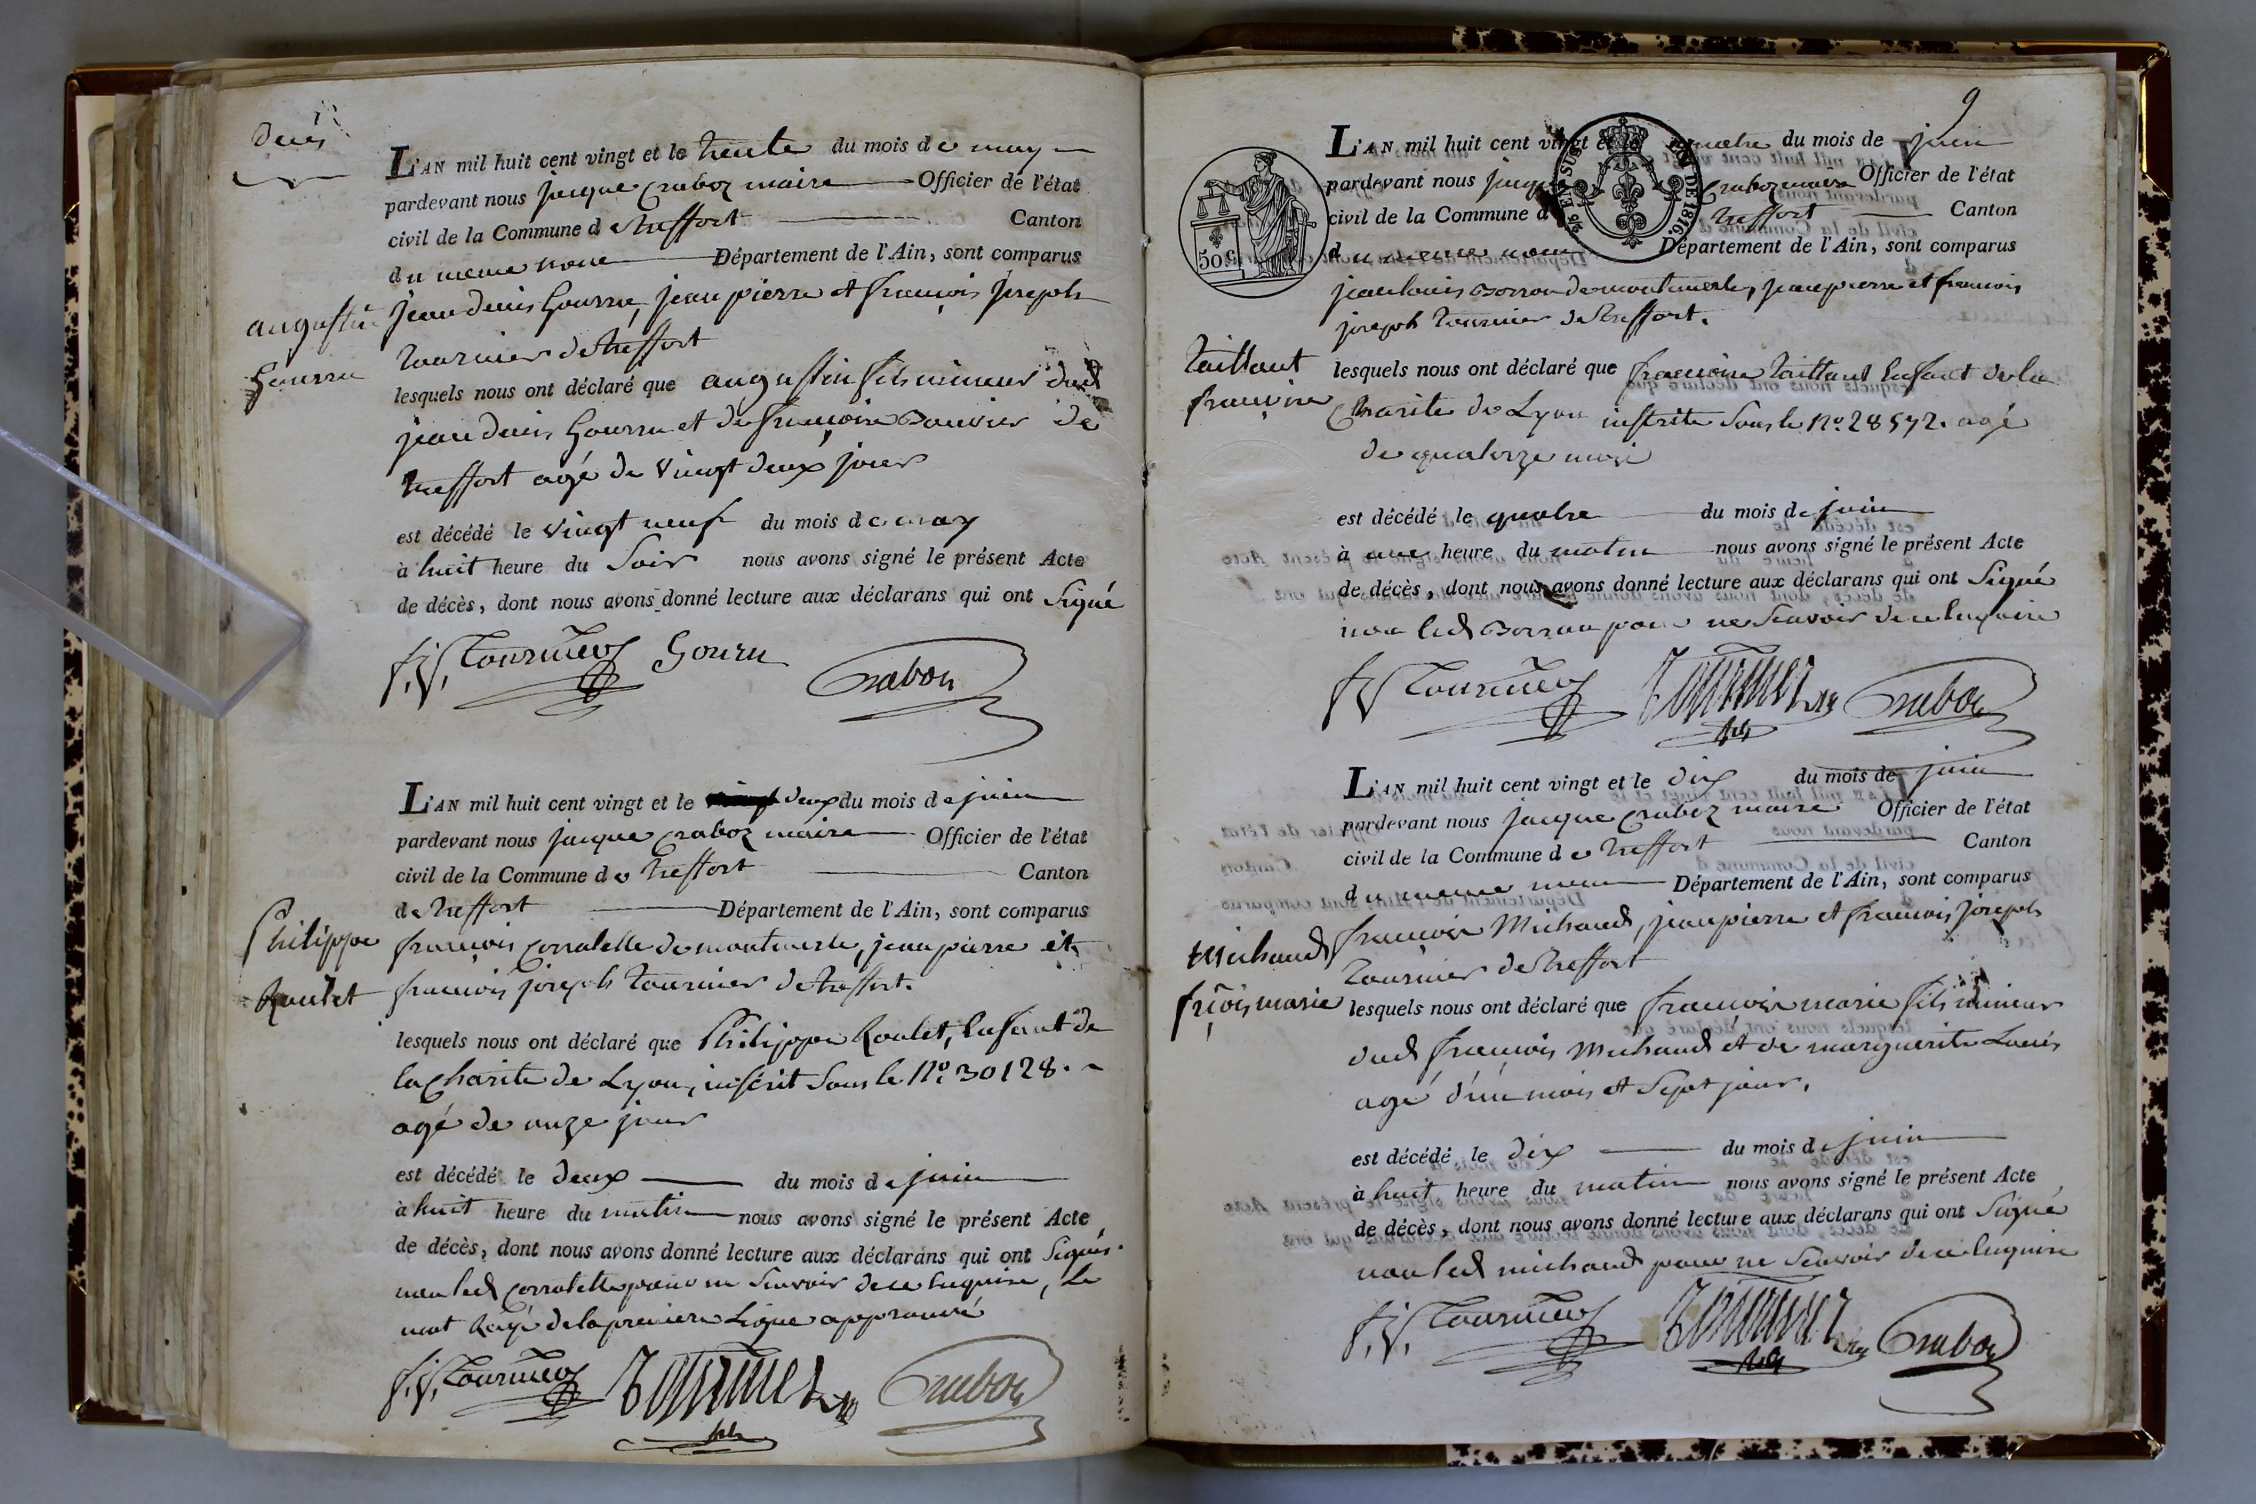 Décès
L'AN mil huit cent vingt et le trente du mois de may
pardevant nous jacque Craboz maire Officier de l'état
civil de la Commune de treffort Canton
du meme nom Département de l'Ain, sont comparus
jean denis Gourru, jean pierre et françois joseph
tournier de treffort
augustin
Gourru
lesquels nous ont déclaré que augustin fils mineur dud
jean denis Gourru et de françoise Bouvier de
treffort agé de vingt deux jour
est décédé le vingt neuf du mois de may
à huit heure du Soir nous avons signé le présent Acte
de décès, dont nous avons donné lecture aux déclarans qui ont Signé
f. j. Tournier Gouru Craboz
L'AN mil huit cent vingt et le deux du mois de juin
pardevant nous jacque Craboz maire Officier de l'état
civil de la Commune de treffort Canton
de treffort Département de l'Ain, sont comparus
françois Corratelle de montmerle, jean pierre et
françois joseph tournier de treffort.
Philippe
Roulet
lesquels nous ont déclaré que Philippe Roulet, Enfant de
la Charite de Lyon, inscrit Sous le N.º 30128.
agé de onze jour
est décédé le deux du mois de juin
à huit heure du matin nous avons signé le présent Acte
de décès, dont nous avons donné lecture aux déclarans qui ont Signés
non led Corratelle pour ne Scavoir de ce Enquire, Le
mot Rayé de la premiere Ligne approuvé
f. j. Tournier Tournier Craboz
9
L'AN mil huit cent vingt et le quatre du mois de juin
pardevant nous jacque Craboz maire Officier de l'état
civil de la Commune de treffort Canton
du meme nom Département de l'Ain, sont comparus
50 c.
DE 1816.
jean louis Borron de montmerle, jean pierre et francois
joseph tournier de treffort.
taillant
françoise
lesquels nous ont déclaré que françoise taillant Enfant de la
Charite de Lyon inscrite Sous le N.º 28572. agé
de quatorze mois
est décédé le quatre du mois de juin
à une heure du matin nous avons signé le présent Acte
de décès, dont nous avons donné lecture aux déclarans qui ont Signé
non led Borron pour ne Scavoir de ce Enquire
f j Tournier Tournier Craboz
L'AN mil huit cent vingt et le dix du mois de juin
pardevant nous jacque Craboz maire Officier de l'état
civil de la Commune de treffort Canton
du meme nom Département de l'Ain, sont comparus
françois Michaud, jean pierre et francois joseph
tournier de treffort
Michaud
frçois marie
lesquels nous ont déclaré que françois marie fils mineur
dud françois Michaud et de marguerite
agé d'un mois et Sept jour.
est décédé le dix du mois de juin
à huit heure du matin nous avons signé le présent Acte
de décès, dont nous avons donné lecture aux déclarans qui ont Signé
non led michaud pour ne Scavoir de ce Enquire
f. j. Tournier Tournier Craboz